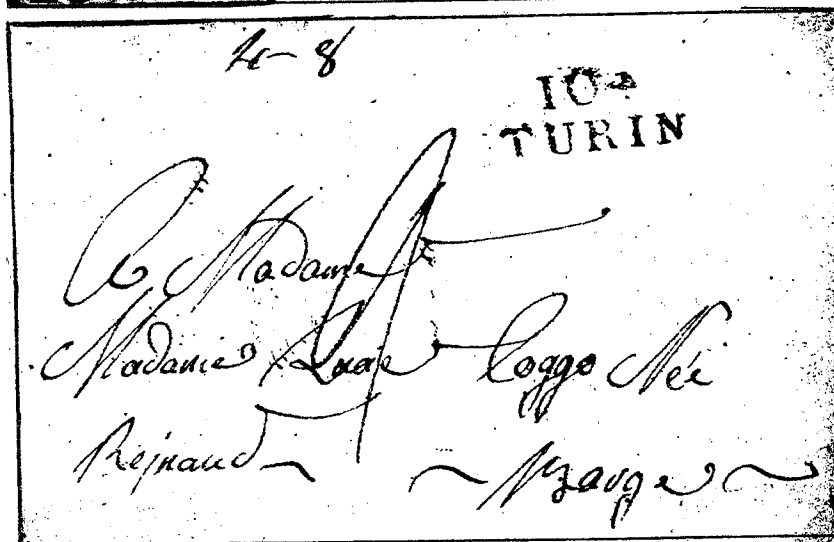 4-8
10
TURIN
A Madame
Madame Coggo Née
Rejnaud